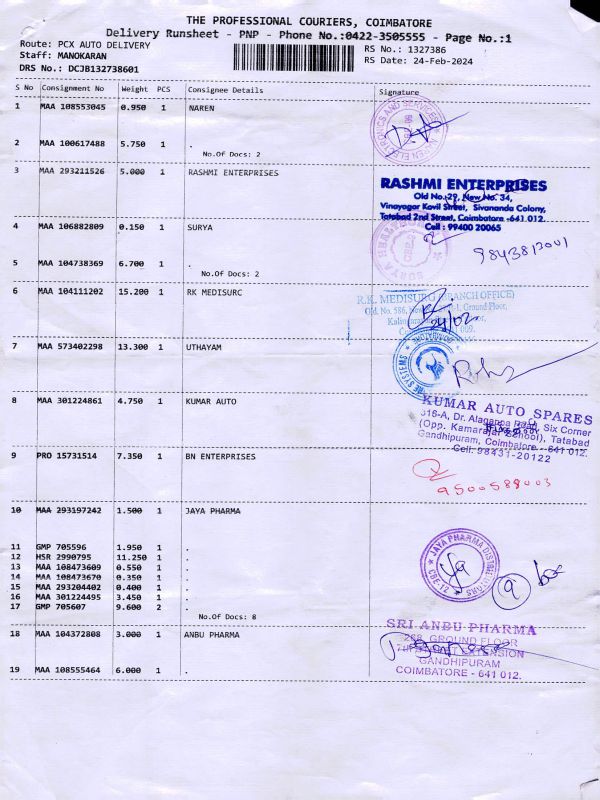 THE PROFESSIONAL COURIERS, COIMBATORE
Delivery Runsheet - PNP - Phone No.:0422-3505555 - Page No.:1
Route: PCX AUTO DELIVERY
RS No.: 1327386
Staff: MANOKARAN
RS Date: 24-Feb-2024
DRS No.: DCJB132738601
S No Consignment No Weight PCS Consignee Details Signature
1 MAA 108553045 0.950 1 NAREN
2 MAA 100617488 5.750 1 .
No.Of Docs: 2
3 MAA 293211526 5.000 1 RASHMI ENTERPRISES
RASHMI ENTERPRISES
Old No.:29, New No. 34,
Vinayagar Kovil Street, Sivananda Colony,
Tatabad 2nd Street, Coimbatore -641 012.
Cell : 99400 20065
4 MAA 106882809 0.150 1 SURYA
9843813001
5 MAA 104738369 6.700 1 .
No.Of Docs: 2
6 MAA 104111202 15.200 1 RK MEDISURC
R.K. MEDISURG (BRANCH OFFICE)
Old. No. 586, Ground Floor,
7 MAA 573402298 13.300 1 UTHAYAM
8 MAA 301224861 4.750 1 KUMAR AUTO
KUMAR AUTO SPARES
316-A, Dr. Alagappa Road, Six Corner
(Opp. Kamarajar School), Tatabad
Gandhipuram, Coimbatore - 641 012.
Cell: 98431-20122
9 PRO 15731514 7.350 1 BN ENTERPRISES
9500588003
10 MAA 293197242 1.500 1 JAYA PHARMA
11 GMP 705596 1.950 1 .
12 HSR 2990795 11.250 1 .
13 MAA 108473609 0.550 1 .
14 MAA 108473670 0.350 1 .
15 MAA 293204402 0.400 1 .
16 MAA 301224495 3.450 1 .
17 GMP 705607 9.600 2 .
No.Of Docs: 8
JAYA PHARMA DISTRIBUTORS
CBE-12
9
18 MAA 104372808 3.000 1 ANBU PHARMA
SRI ANBU PHARMA
268, GROUND FLOOR
EXTENSION
GANDHIPURAM
COIMBATORE - 641 012.
19 MAA 108555464 6.000 1 .